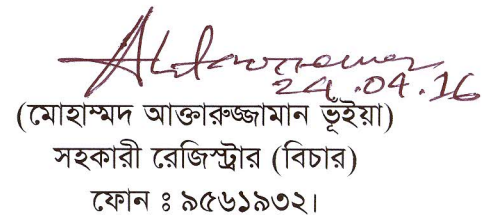 24.04.16
(মোহাম্মদ আক্তারুজ্জামান ভূঁইয়া)
সহকারী রেজিস্ট্রার (বিচার)
ফোন ঃ ৯৫৬১৯৩২।